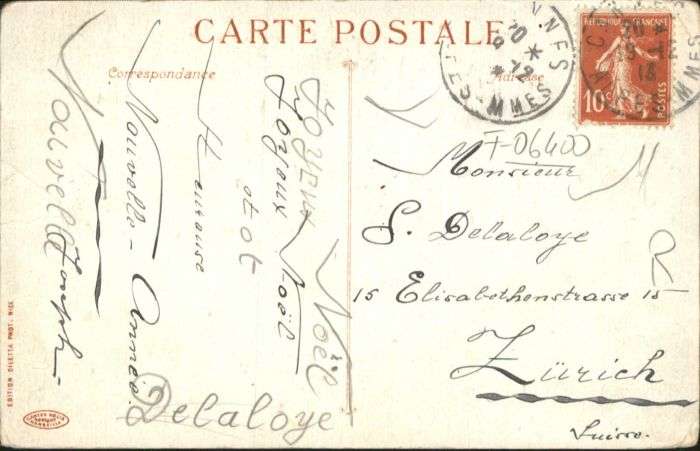 CARTE POSTALE
Correspondance
Adresse
RÉPUBLIQUE FRANÇAISE
10c POSTES
F-06400
Monsieur
S. Delaloye
15 Elisabethenstrasse 15
Zürich
Suisse.
Joyeux Noël
Joyeux Noël
et
Heureuse
Nouvelle-Année.
Nouvelle
Joseph
Delaloye
EDITION GILETTA PHOT. NICE